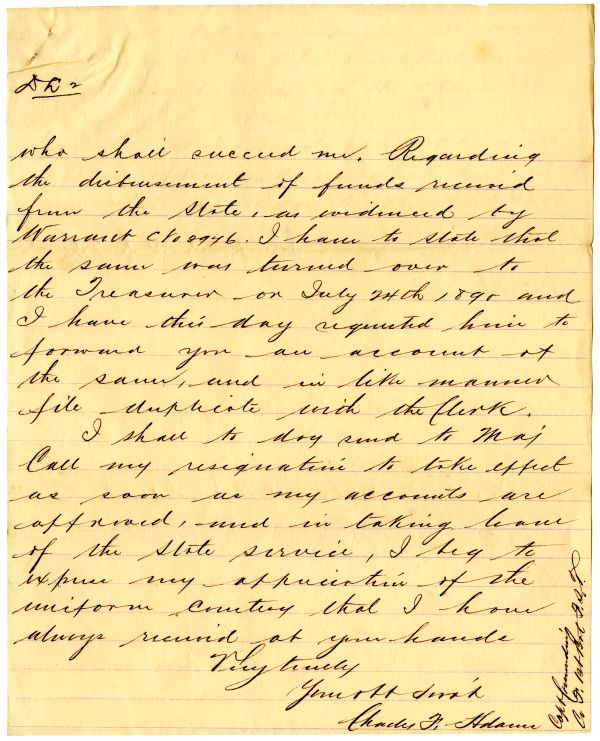 who shall succeed me. Regarding
the disbursement of funds received
from the State, as evidenced by
Warrant No 0946. I have to state that
the same was turned over to
the Treasurer on July 24th 1890 and
I have this day requested him to
forward you an account of
the same, and in like manner
file duplicate with the Clerk.
I shall to day send to Maj
Call my resignation to take effect
as soon as my accounts are
approved, and in taking leave
of the State service, I beg to
express my appreciation of the
uniform courtesy that I have
always received at your hands
Very truly
Your obt Serv't
Charles F. Adams
Capt